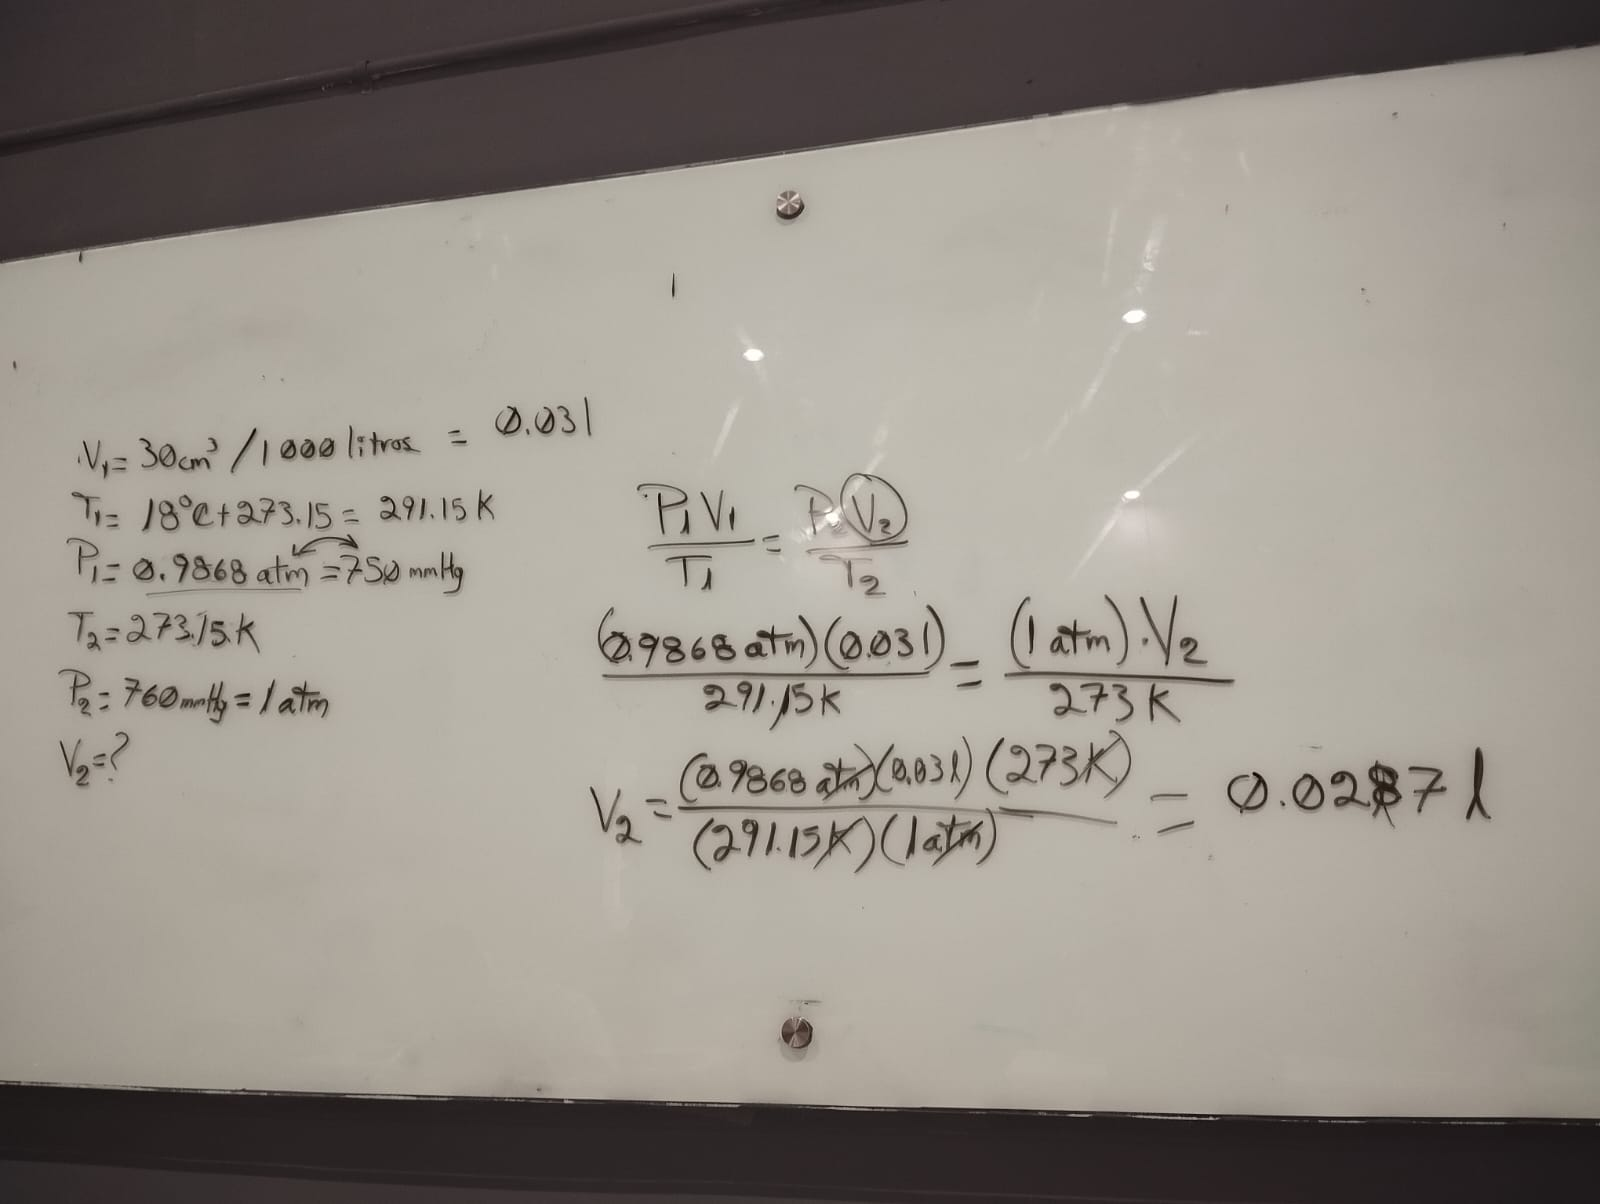 V₁= 30cm³ /1000 litros = 0.03l
T₁= 18°C+273.15 = 291.15 K
P₁= 0.9868 atm = 750 mmHg
T₂=273.15.K
P₂= 760mmHg = 1 atm
V₂=?
P₁V₁ / T₁ = P₂V₂ / T₂
(0.9868 atm)(0.03l) / 291.15K = (1 atm).V₂ / 273 K
V₂ = (0.9868 atm)(0.03l)(273K) / (291.15K)(1atm) = 0.0287 l